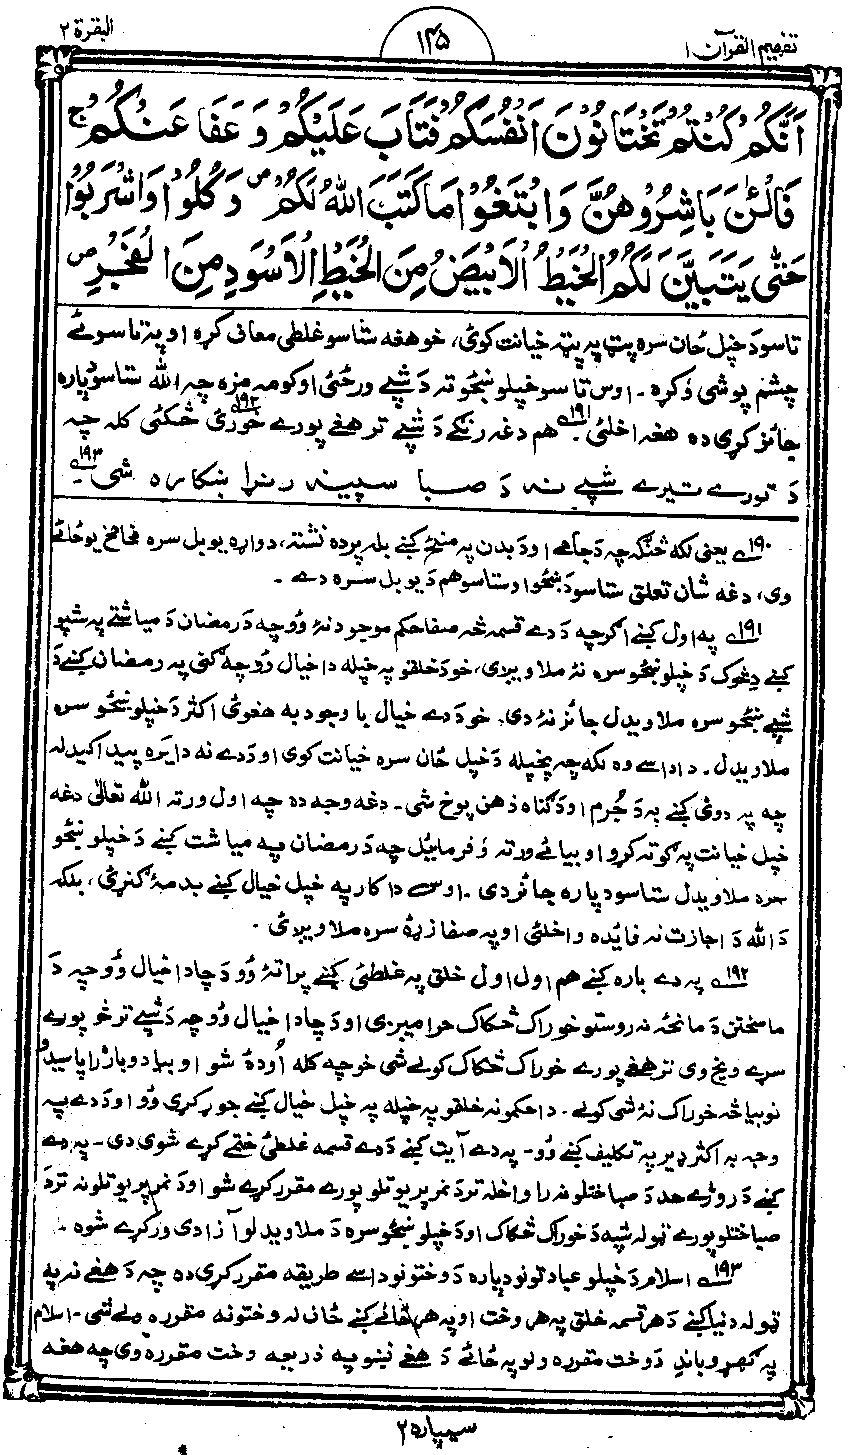 تفهيم القرآن ١
١٤٥
البقرة ٢
اَنَّكُمْ كُنْتُمْ تَخْتَانُوْنَ اَنْفُسَكُمْ فَتَابَ عَلَيْكُمْ وَعَفَا عَنْكُمْ ج
فَالْـٰٔنَ بَاشِرُوْهُنَّ وَابْتَغُوْا مَا كَتَبَ اللّٰهُ لَكُمْ ص وَكُلُوْا وَاشْرَبُوْا
حَتّٰى يَتَبَيَّنَ لَكُمُ الْخَيْطُ الْاَبْيَضُ مِنَ الْخَيْطِ الْاَسْوَدِ مِنَ الْفَجْرِ ص
تاسو دَ خپل ځان سره پټ په پټه خيانت کوئ، خو هغه ستاسو غلطي معاف کړه او په تاسو ئے
چشم پوشي وکړه ۔ اوس تاسو خپلو ښځو ته دَ شپے ورځئ او کومه مزه چه الله ستاسو دپاره
جائز کړي ده هغه اخلئ ۱۹۱ هم دغه رنګے دَ شپے تر هغے پورے خورئ ۱۹۲ څکئ کله چه
دَ تورے تيرے شپے نه دَ صبا سپينه رنړا ښکاره شي ۱۹۳
۱۹۰ يعني لکه څنګه چه دَ جامے او دَ بدن په منځ کښے بله پرده نشته، دواړه يو بل سره مخامخ يو ځائے
وي، دغه شان تعلق ستاسو دَ ښځو او ستاسو هم دَ يو بل سره دے ۔
۱۹۱ په اول کښے اګرچه دَ دے قسمه څه صفا حکم موجود نۀ وو چه دَ رمضان دَ مياشتے په شپو
کښے دِ څوک دَ خپلو ښځو سره نۀ ملاويږي، خو دَ خلقو په خپله دا خيال وو چه ګني په رمضان کښے دَ
شپے ښځو سره ملاويدل جائز نۀ دي. خو دَ دے خيال باوجود به هغوئ اکثر دَ خپلو ښځو سره
ملاويدل ۔ دا داسے وه لکه چه پخپله دَ خپل ځان سره خيانت کوي او دَ دے نه دا يَره پيدا کيدله
چه په دوئ کښے به دَ جُرم او دَ ګناه ذهن پوخ شي ۔ دغه وجه ده چه اول ورته الله تعالىٰ دغه
خپل خيانت په ګوته کړو او بيا ئے ورته وفرمائيل چه دَ رمضان په مياشت کښے دَ خپلو ښځو
سره ملاويدل ستاسو دپاره جائز دي ۔ اوس دا کار په خپل خيال کښے بد مۀ ګنړئ، بلکه
دَ الله دَ اجازت نه فائده واخلئ او په صفا زړۀ سره ملاويږئ .
۱۹۲ په دے باره کښے هم اول اول خلق په غلطئ کښے پراتۀ وو دَ چا دا خيال وو چه دَ
ماسختن دَ مانځه نه روستو خوراک څکاک حراميږي او دَ چا دا خيال وو چه دَ شپے تر څو پورے
سړے ويخ وي تر هغے پورے خوراک څکاک کولے شي خو چه کله اُودۀ شو او بيا دوباره راپاسيدو
نو بيا څه خوراک نۀ شي کولے ۔ دا حکمونه خلقو په خپله په خپل خيال کښے جوړ کړي وو او دَ دے په
وجه به اکثر ډير په تکليف کښے وو ۔ په دے آيت کښے دَ دے قسمه غلطئ ختمے کړے شوي دي ۔ په دے
کښے دَ روژے حد دَ صبا ختلو نه را واخله تر دَ نمر پريوتلو پورے مقرر کړے شو او دَ نمر پريوتلو نه تر دَ
صبا ختلو پورے ټوله شپه دَ خوراک څکاک او دَ خپلو ښځو سره دَ ملاويدلو آزادي ورکړے شوه ۔
۱۹۳ اسلام دَ خپلو عبادتونو دپاره دَ وختونو داسے طريقه مقرر کړي ده چه دَ هغے نه په
ټوله دنيا کښے دَ هر قسمه خلق په هر وخت او په هر ځائے کښے ځان له وختونه مقرره ولے شي ۔ اسلام
په ګهړو باندِ دَ وخت مقرره ولو په ځائے دَ هغے نښو په ذريعه وخت مقرره وي چه هغه
سيپاره ٢